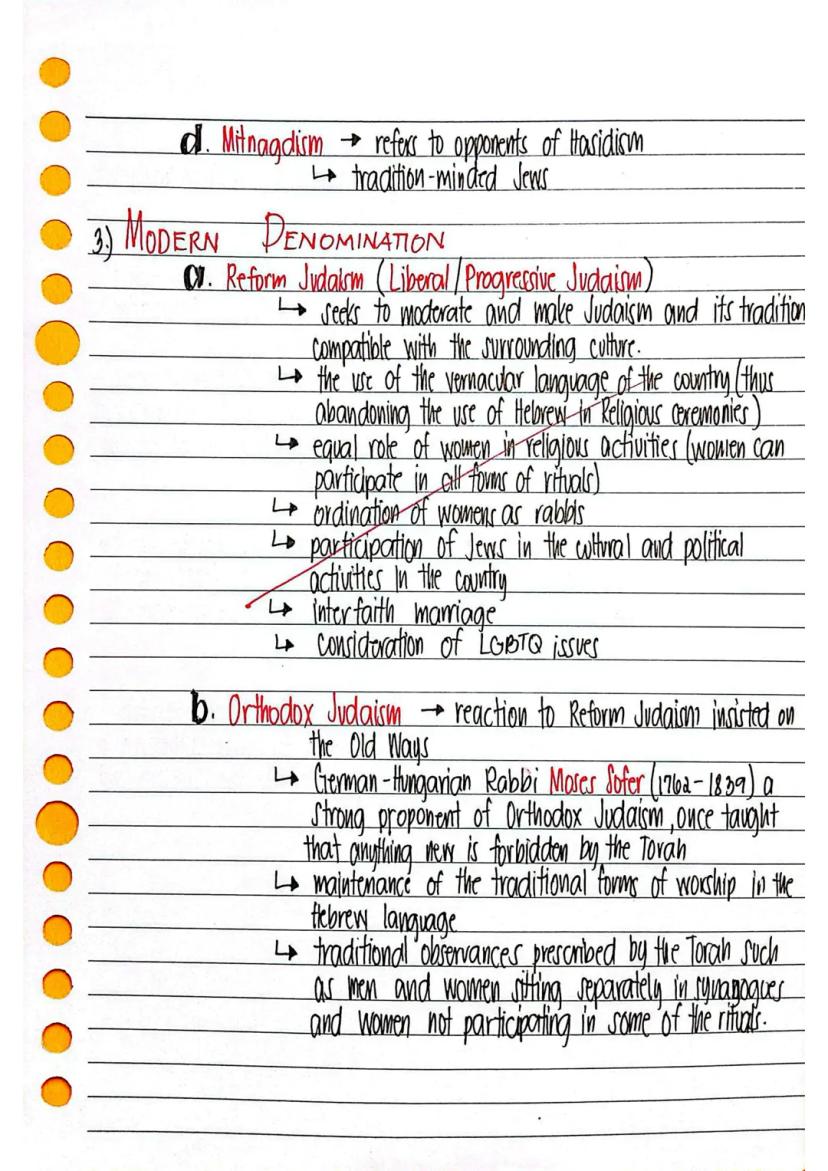 d. Mitnagdism → refers to opponents of Hasidism
↳ tradition-minded Jews
3.) MODERN DENOMINATION
a. Reform Judaism (Liberal/Progressive Judaism)
↳ seeks to moderate and make Judaism and its tradition
compatible with the surrounding culture.
↳ the use of the vernacular language of the country (thus
abandoning the use of Hebrew in Religious ceremonies)
↳ equal role of women in religious activities (women can
participate in all forms of rituals)
↳ ordination of womens as rabbis
↳ participation of Jews in the cultural and political
activities in the country
↳ interfaith marriage
↳ consideration of LGBTQ issues
b. Orthodox Judaism → reaction to Reform Judaism insisted on
the Old Ways
↳ German-Hungarian Rabbi Moses Sofer (1762-1839) a
strong proponent of Orthodox Judaism, once taught
that anything new is forbidden by the Torah
↳ maintenance of the traditional forms of worship in the
Hebrew language
↳ traditional observances prescribed by the Torah such
as men and women sitting separately in synagogues
and women not participating in some of the rituals.